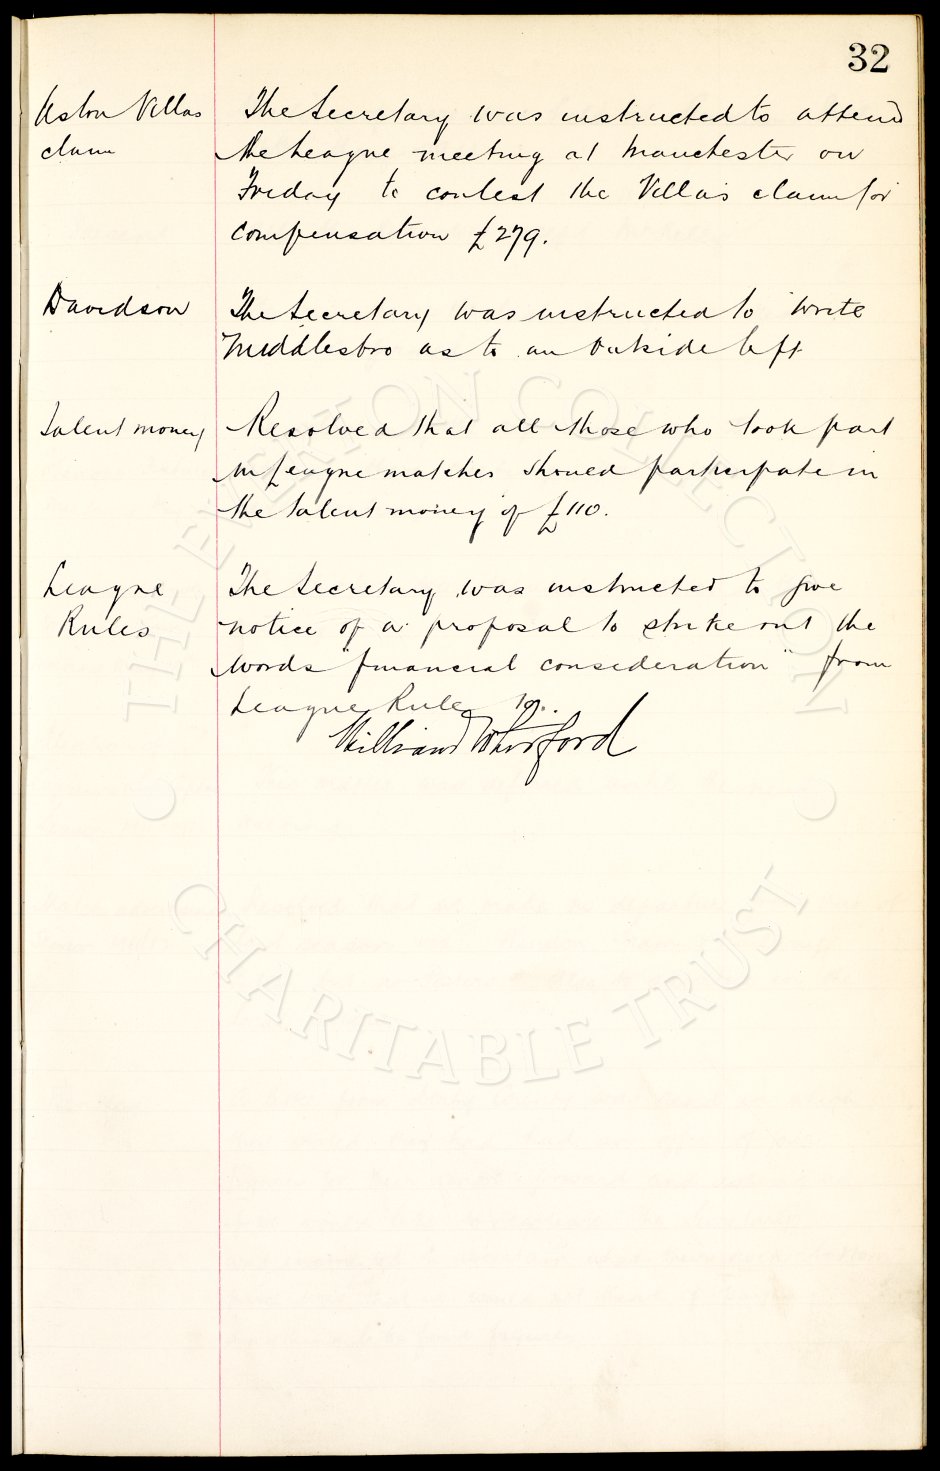 32
Aston Villas
claim
The Secretary was instructed to attend
the League meeting at Manchester on
Friday to contest the Villa's claim for
Compensation £279.
Davidson
The Secretary was instructed to write
Middlesbro as to an Outside left
Talent money
Resolved that all those who took part
in League matches should participate in
the talent money of £110.
League
Rules
The Secretary was instructed to give
notice of a proposal to strike out the
words "financial consideration" from
League Rule
William Whitford
THE EVERTON COLLECTION
CHARITABLE TRUST